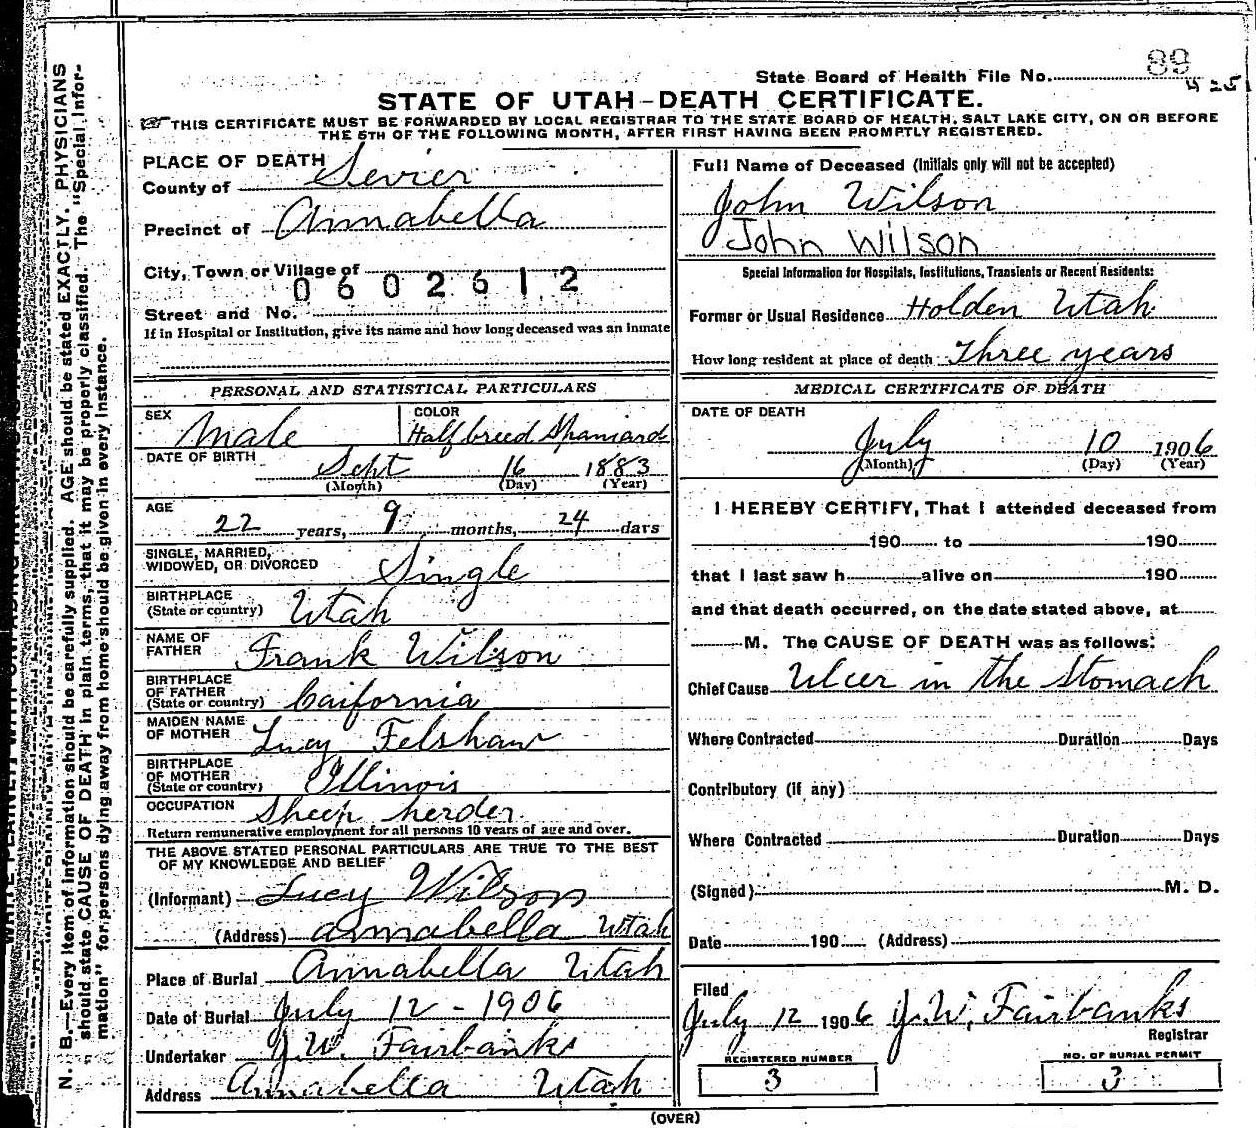 89
State Board of Health File No.
STATE OF UTAH-DEATH CERTIFICATE.
THIS CERTIFICATE MUST BE FORWARDED BY LOCAL REGISTRAR TO THE STATE BOARD OF HEALTH, SALT LAKE CITY, ON OR BEFORE
THE 5TH OF THE FOLLOWING MONTH, AFTER FIRST HAVING BEEN PROMPTLY REGISTERED.
PLACE OF DEATH
County of Sevier
Precinct of Annabella
City, Town or Village of
0602612
Street and No.
If in Hospital or Institution, give its name and how long deceased was an inmate
PERSONAL AND STATISTICAL PARTICULARS
SEX Male
COLOR Half breed Spaniard
DATE OF BIRTH
Sept 16 1883
(Month) (Day) (Year)
AGE
22 years, 9 months, 24 days
SINGLE, MARRIED,
WIDOWED, OR DIVORCED Single
BIRTHPLACE
(State or country) Utah
NAME OF
FATHER Frank Wilson
BIRTHPLACE
OF FATHER
(State or country) Caifornia
MAIDEN NAME
OF MOTHER Lucy Felshaw
BIRTHPLACE
OF MOTHER
(State or country) Illinois
OCCUPATION Sheep herder
Return remunerative employment for all persons 10 years of age and over.
THE ABOVE STATED PERSONAL PARTICULARS ARE TRUE TO THE BEST
OF MY KNOWLEDGE AND BELIEF
(Informant) Lucy Wilson
(Address) Annabella Utah
Place of Burial Annabella Utah
Date of Burial July 12 - 1906
Undertaker J. W. Fairbanks
Address Annabella Utah
Full Name of Deceased (Initials only will not be accepted)
John Wilson
John Wilson
Special Information for Hospitals, Institutions, Transients or Recent Residents:
Former or Usual Residence Holden Utah
How long resident at place of death Three years
MEDICAL CERTIFICATE OF DEATH
DATE OF DEATH
July 10 1906
(Month) (Day) (Year)
I HEREBY CERTIFY, That I attended deceased from
190 to 190
that I last saw h alive on 190
and that death occurred, on the date stated above, at
M. The CAUSE OF DEATH was as follows:
Chief Cause Ulcer in the Stomach
Where Contracted Duration Days
Contributory (if any)
Where Contracted Duration Days
(Signed) M. D.
Date 190 (Address)
Filed
July 12 1906 J. W. Fairbanks
Registrar
REGISTERED NUMBER
3
NO. OF BURIAL PERMIT
3
(OVER)
N. B.—Every item of information should be carefully supplied. AGE should be stated EXACTLY. PHYSICIANS
should state CAUSE OF DEATH in plain terms, that it may be properly classified. The "Special Infor-
mation" for persons dying away from home should be given in every instance.